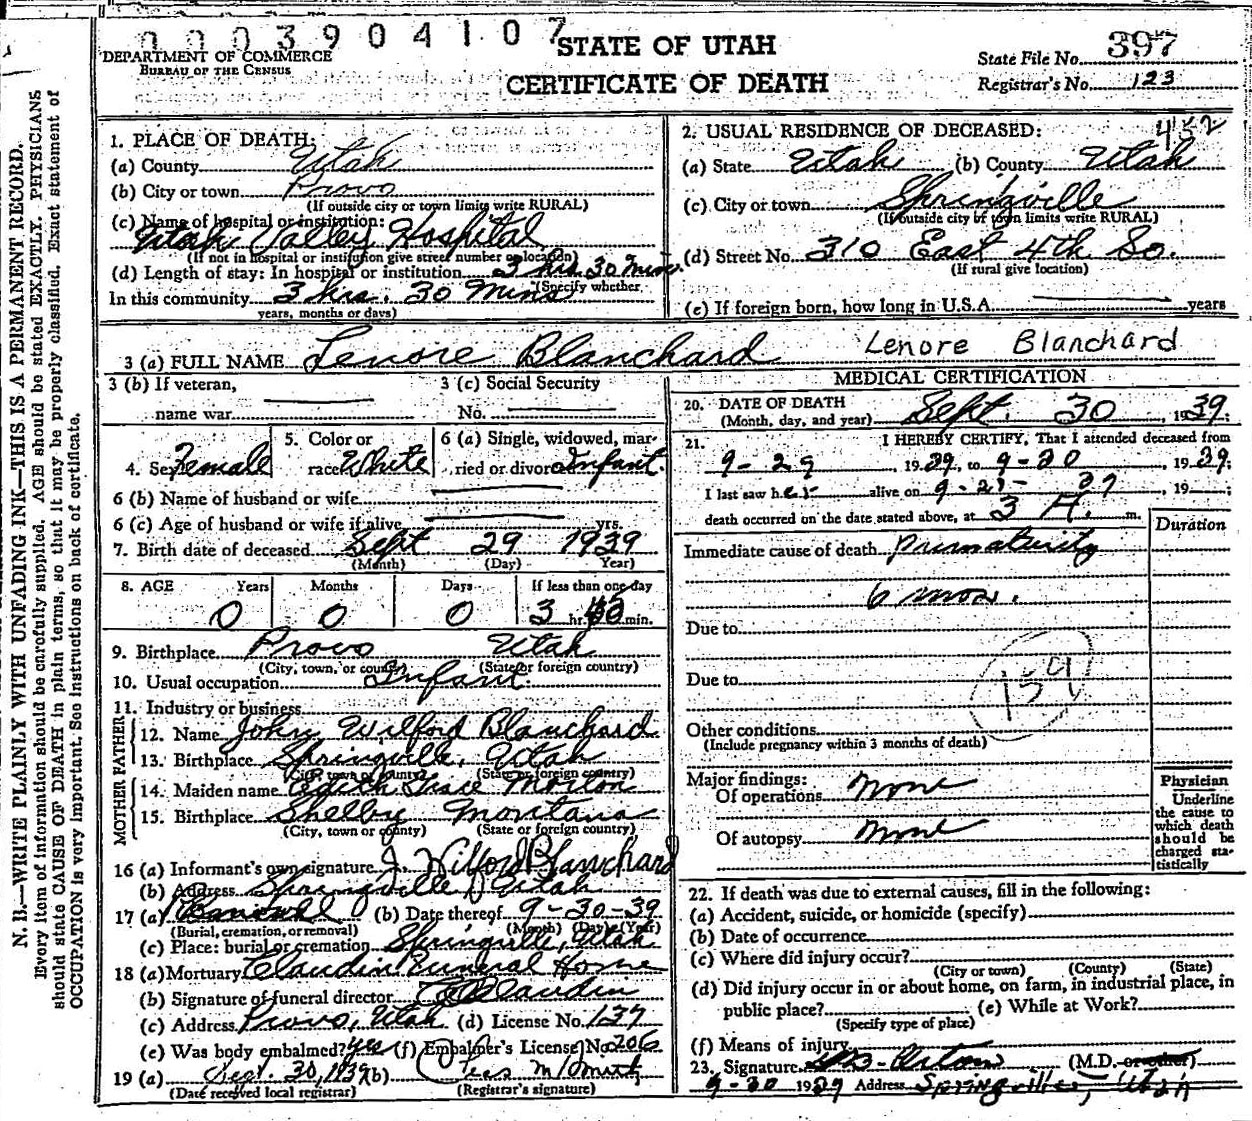 0003904107
DEPARTMENT OF COMMERCE
BUREAU OF THE CENSUS
STATE OF UTAH
CERTIFICATE OF DEATH
State File No. 397
Registrar's No. 123
N. B.—WRITE PLAINLY WITH UNFADING INK—THIS IS A PERMANENT RECORD.
Every item of information should be carefully supplied. AGE should be stated EXACTLY. PHYSICIANS
should state CAUSE OF DEATH in plain terms, so that it may be properly classified. Exact statement of
OCCUPATION is very important. See instructions on back of certificate.
1. PLACE OF DEATH:
(a) County Utah
(b) City or town Provo
(If outside city or town limits write RURAL)
(c) Name of hospital or institution:
Utah Valley Hospital
(If not in hospital or institution give street number or location)
(d) Length of stay: In hospital or institution 3 hrs 30 mins.
(Specify whether
In this community 3 hrs. 30 Mins
years, months or days)
2. USUAL RESIDENCE OF DECEASED: 452
(a) State Utah (b) County Utah
(c) City or town Springville
(If outside city of town limits write RURAL)
(d) Street No. 310 East 4th So.
(If rural give location)
(e) If foreign born, how long in U.S.A. years
3 (a) FULL NAME Lenore Blanchard Lenore Blanchard
3 (b) If veteran,
name war
3 (c) Social Security
No.
4. Sex Female
5. Color or
race White
6 (a) Single, widowed, mar-
ried or divorced Infant.
6 (b) Name of husband or wife
6 (c) Age of husband or wife if alive yrs.
7. Birth date of deceased Sept 29 1939
(Month) (Day) Year)
8. AGE Years Months Days If less than one day
0 0 0 3 hr. min.
9. Birthplace Provo Utah
(City, town, or county) (State or foreign country)
10. Usual occupation Infant.
11. Industry or business
FATHER
12. Name John Wilford Blanchard
13. Birthplace Springville, Utah
(City, town or county) (State or foreign country)
MOTHER
14. Maiden name Edith Morton
15. Birthplace Shelby Montana
(City, town or county) (State or foreign country)
16 (a) Informant's own signature J. Wilford Blanchard
(b) Address Springville, Utah
17 (a) (b) Date thereof 9-30-39
(Burial, cremation, or removal) (Month) (Day) (Year)
(c) Place: burial or cremation Springville, Utah
18 (a) Mortuary Claudin Funeral Home
(b) Signature of funeral director Claudin
(c) Address Provo, Utah (d) License No. 137
(e) Was body embalmed? yes (f) Embalmer's License No. 206
19 (a) Sept. 30, 1939 (b)
(Date received local registrar) (Registrar's signature)
MEDICAL CERTIFICATION
20. DATE OF DEATH
(Month, day, and year) Sept. 30, 1939;
21. I HEREBY CERTIFY, That I attended deceased from
9-29, 1939, to 9-30, 1939;
I last saw her alive on 9-29- 39, 19;
death occurred on the date stated above, at 3 A. m.
Duration
Immediate cause of death prematurity
6 mos.
Due to
Due to
159
Other conditions
(Include pregnancy within 3 months of death)
Major findings:
Of operations none
Of autopsy none
Physician
Underline
the cause to
which death
should be
charged sta-
tistically
22. If death was due to external causes, fill in the following:
(a) Accident, suicide, or homicide (specify)
(b) Date of occurrence
(c) Where did injury occur?
(City or town) (County) (State)
(d) Did injury occur in or about home, on farm, in industrial place, in
public place? (e) While at Work?
(Specify type of place)
(f) Means of injury
23. Signature Orton (M.D. or other)
9-30 1939 Address Springville, Utah